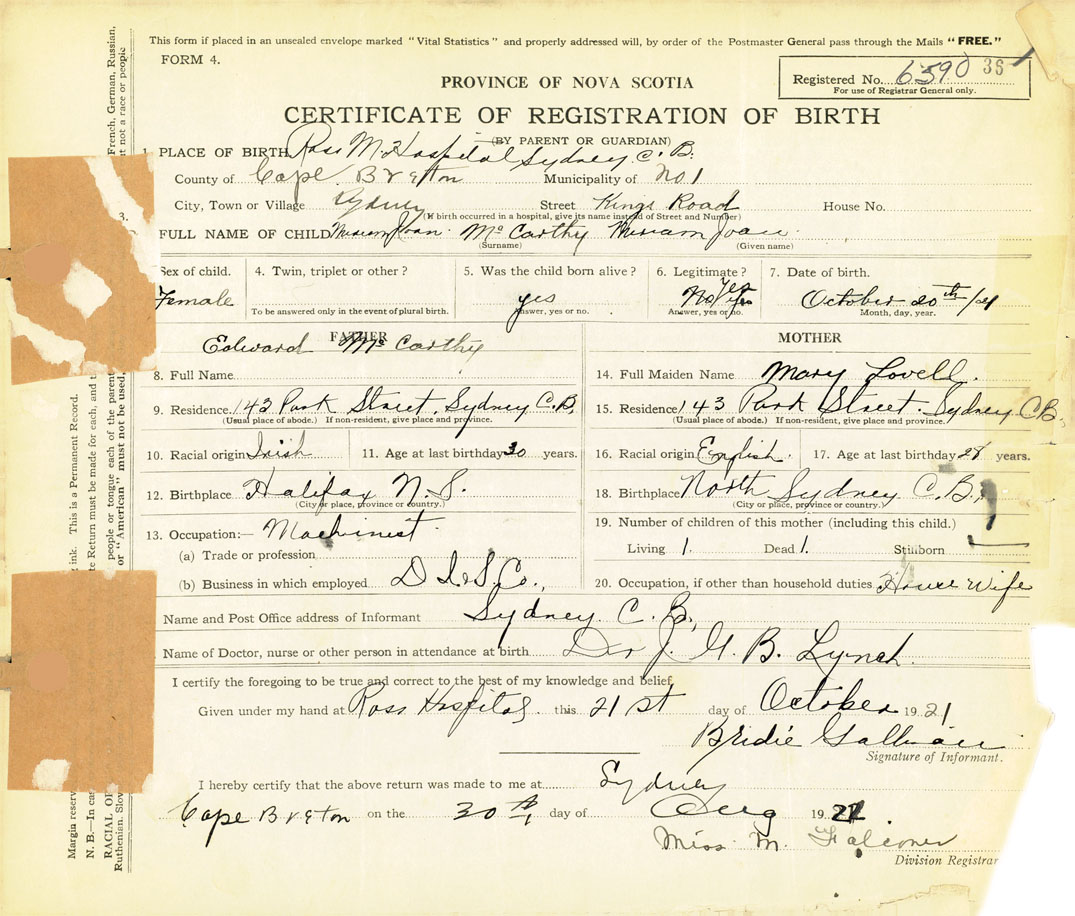 This form if placed in an unsealed envelope marked "Vital Statistics" and properly addressed will, by order of the Postmaster General pass through the Mails "FREE."
FORM 4.
Registered No. 6590 36
For use of Registrar General only.
PROVINCE OF NOVA SCOTIA
CERTIFICATE OF REGISTRATION OF BIRTH
(BY PARENT OR GUARDIAN)
1. PLACE OF BIRTH Ross M. Hospital Sydney C. B.
County of Cape Breton Municipality of No 1
City, Town or Village Sydney Street Kings Road House No.
(If birth occurred in a hospital, give its name instead of Street and Number)
FULL NAME OF CHILD Miriam Joan McCarthy Miriam Joan
(Surname) (Given name)
Sex of child. 4. Twin, triplet or other? 5. Was the child born alive? 6. Legitimate? 7. Date of birth.
Female yes No Yes Yes October 20th /21
To be answered only in the event of plural birth. Answer, yes or no. Answer, yes or no. Month, day, year.
FATHER MOTHER
Edward McCarthy
8. Full Name 14. Full Maiden Name Mary Lovell.
9. Residence 143 Park Street, Sydney C.B. 15. Residence 143 Park Street. Sydney CB.
(Usual place of abode.) If non-resident, give place and province. (Usual place of abode.) If non-resident, give place and province.
10. Racial origin Irish 11. Age at last birthday 30 years. 16. Racial origin English. 17. Age at last birthday years.
12. Birthplace Halifax N. S. 18. Birthplace North Sydney C. B.
(City or place, province or country.) (City or place, province or country.)
13. Occupation:— Machinest 19. Number of children of this mother (including this child.)
(a) Trade or profession Living 1. Dead 1. Stillborn
(b) Business in which employed D I & S. Co., 20. Occupation, if other than household duties House Wife
Name and Post Office address of Informant Sydney C. B.,
Name of Doctor, nurse or other person in attendance at birth J. G. B. Lynch.
I certify the foregoing to be true and correct to the best of my knowledge and belief.
Given under my hand at Ross Hospital. this 21st day of October 1921
Bridie
Signature of Informant.
I hereby certify that the above return was made to me at Sydney
Cape Breton on the 30th, day of 19
Miss M. Falconer
Division Registrar
3.
French, German, Russian,
but not a race or people
ink. This is a Permanent Record.
Return must be made for each, and
people or tongue each of the parent
or "American" must not be used,
Margin reserv
N. B.—In cas
RACIAL OR
Ruthenian, Slov